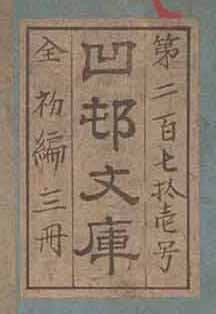 第二百七拾壱号
凹邨文庫
全初編三冊